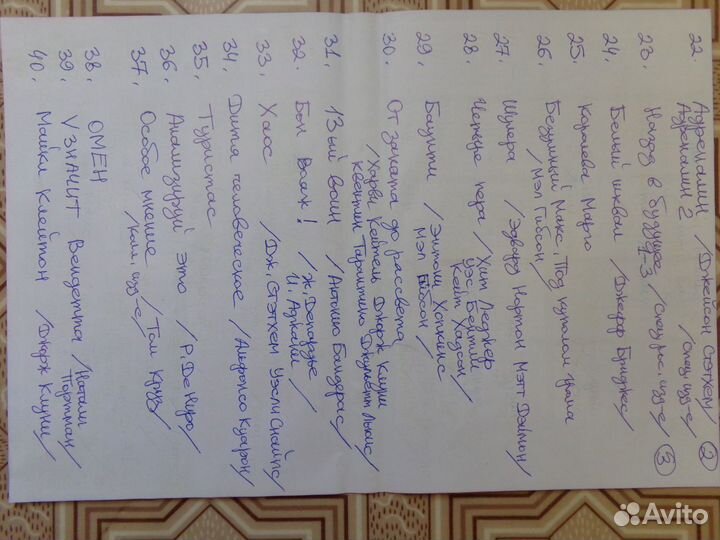 22. Адреналин / Джейсон Стэтхем /
Адреналин 2 / спец. изд-е / 2
23. Назад в будущее / спец. рус. изд-е / 3
1-3
24. Белый шквал / Джефф Бриджес /
25. Королева Марго
26. Безумный Макс. Под куполом грома
/ Мэл Гибсон /
27. Шулера / Эдвард Нортон Мэтт Дэймон /
28. Четыре пера / Хит Леджер
Уэс Бентли
Кейт Хадсон /
29. Баунти / Энтони Хопкинс
Мэл Гибсон /
30. От заката до рассвета
/ Харви Кейтель Джордж Клуни
Квентин Тарантино Джульетт Льюис /
31. 13ый воин / Антонио Бандерас /
32. Бон Вояж! / Ж. Депардье
И. Аджани /
33. Хаос / Дж. Стэтхем Уэсли Снайпс /
34. Дитя человеческое / Альфонсо Куарон /
35. Туристас
36. Анализируй это / Р. Де Ниро /
37. Особое мнение / Том Круз /
/ кол. изд-е /
38. ОМЕН
39. V ЗНАЧИТ Вендетта / Натали
Портман /
40. Майкл Клейтон / Джордж Клуни /
Avito